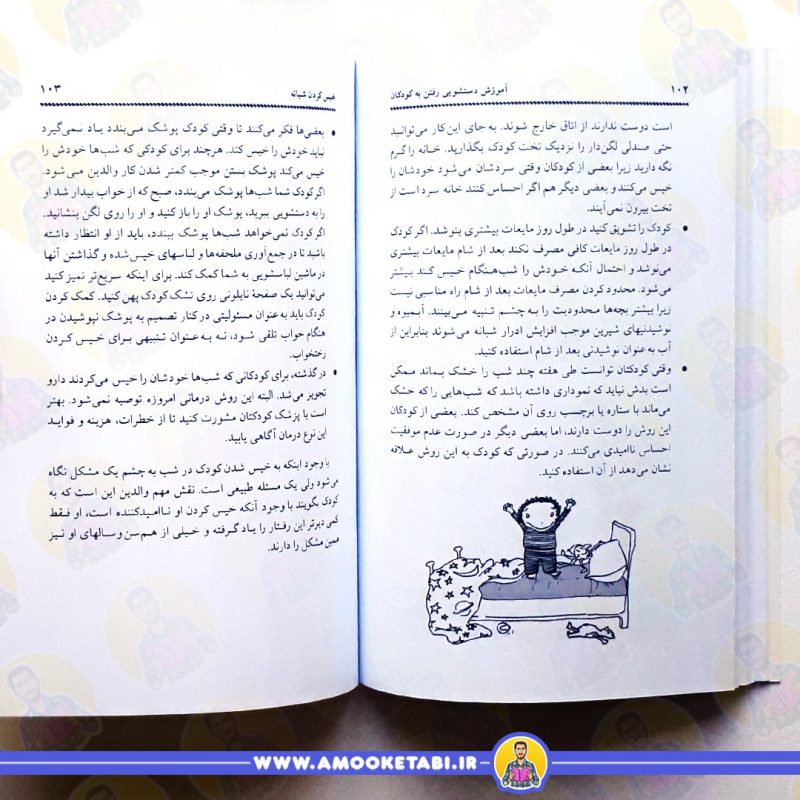 ۱۰۲
آموزش دستشویی رفتن به کودکان
است دوست ندارند از اتاق خارج شوند. به جای این کار می‌توانید
حتی صندلی لگن‌دار را نزدیک تخت کودک بگذارید. خانه را گرم
نگه دارید زیرا بعضی از کودکان وقتی سردشان می‌شود خودشان را
خیس می‌کنند و بعضی دیگر هم اگر احساس کنند خانه سرد است از
تخت بیرون نمی‌آیند.
• کودک را تشویق کنید در طول روز مایعات بیشتری بنوشد. اگر کودک
در طول روز مایعات کافی مصرف نکند بعد از شام مایعات بیشتری
می‌نوشد و احتمال آنکه خودش را شب‌هنگام خیس کند بیشتر
می‌شود. محدود کردن مصرف مایعات بعد از شام راه مناسبی نیست
زیرا بیشتر بچه‌ها محدودیت را به چشم تنبیه می‌بینند. آبمیوه و
نوشیدنیهای شیرین موجب افزایش ادرار شبانه می‌شوند بنابراین از
آب به عنوان نوشیدنی بعد از شام استفاده کنید.
• وقتی کودکتان توانست طی هفته چند شب را خشک بماند ممکن
است بدش نیاید که نموداری داشته باشد که شب‌هایی را که خشک
می‌ماند با ستاره یا برچسب روی آن مشخص کند. بعضی از کودکان
این روش را دوست دارند، اما بعضی دیگر در صورت عدم موفقیت
احساس ناامیدی می‌کنند. در صورتی که کودک به این روش علاقه
نشان می‌دهد از آن استفاده کنید.
خیس کردن شبانه
۱۰۳
• بعضی‌ها فکر می‌کنند تا وقتی کودک پوشک می‌بندد یاد نمی‌گیرد
نباید خودش را خیس کند. هرچند برای کودکی که شب‌ها خودش را
خیس می‌کند پوشک بستن موجب کمتر شدن کار والدین می‌شود.
اگر کودک شما شب‌ها پوشک می‌بندد، صبح که از خواب بیدار شد او
را به دستشویی ببرید، پوشک او را باز کنید و او را روی لگن بنشانید.
اگر کودک نمی‌خواهد شب‌ها پوشک ببندد، باید از او انتظار داشته
باشید تا در جمع‌آوری ملحفه‌ها و لباسهای خیس شده و گذاشتن آنها
در ماشین لباسشویی به شما کمک کند. برای اینکه سریع‌تر تمیز کنید
می‌توانید یک صفحهٔ نایلونی روی تشک کودک پهن کنید. کمک کردن
کودک باید به عنوان مسئولیتی در کنار تصمیم به پوشک نپوشیدن در
هنگام خواب تلقی شود، نه به عنوان تنبیهی برای خیس کردن
رختخواب.
• در گذشته، برای کودکانی که شب‌ها خودشان را خیس می‌کردند دارو
تجویز می‌شد. البته این روش درمانی امروزه توصیه نمی‌شود. بهتر
است با پزشک کودکتان مشورت کنید تا از خطرات، هزینه و فواید
این نوع درمان آگاهی یابید.
با وجود اینکه به خیس شدن کودک در شب به چشم یک مشکل نگاه
می‌شود ولی یک مسئله طبیعی است. نقش مهم والدین این است که به
کودک بگویند با وجود آنکه خیس کردن او ناامیدکننده است، او فقط
کمی دیرتر این رفتار را یاد گرفته و خیلی از هم‌سن و سالهای او نیز
همین مشکل را دارند.
WWW.AMOOKETABI.IR